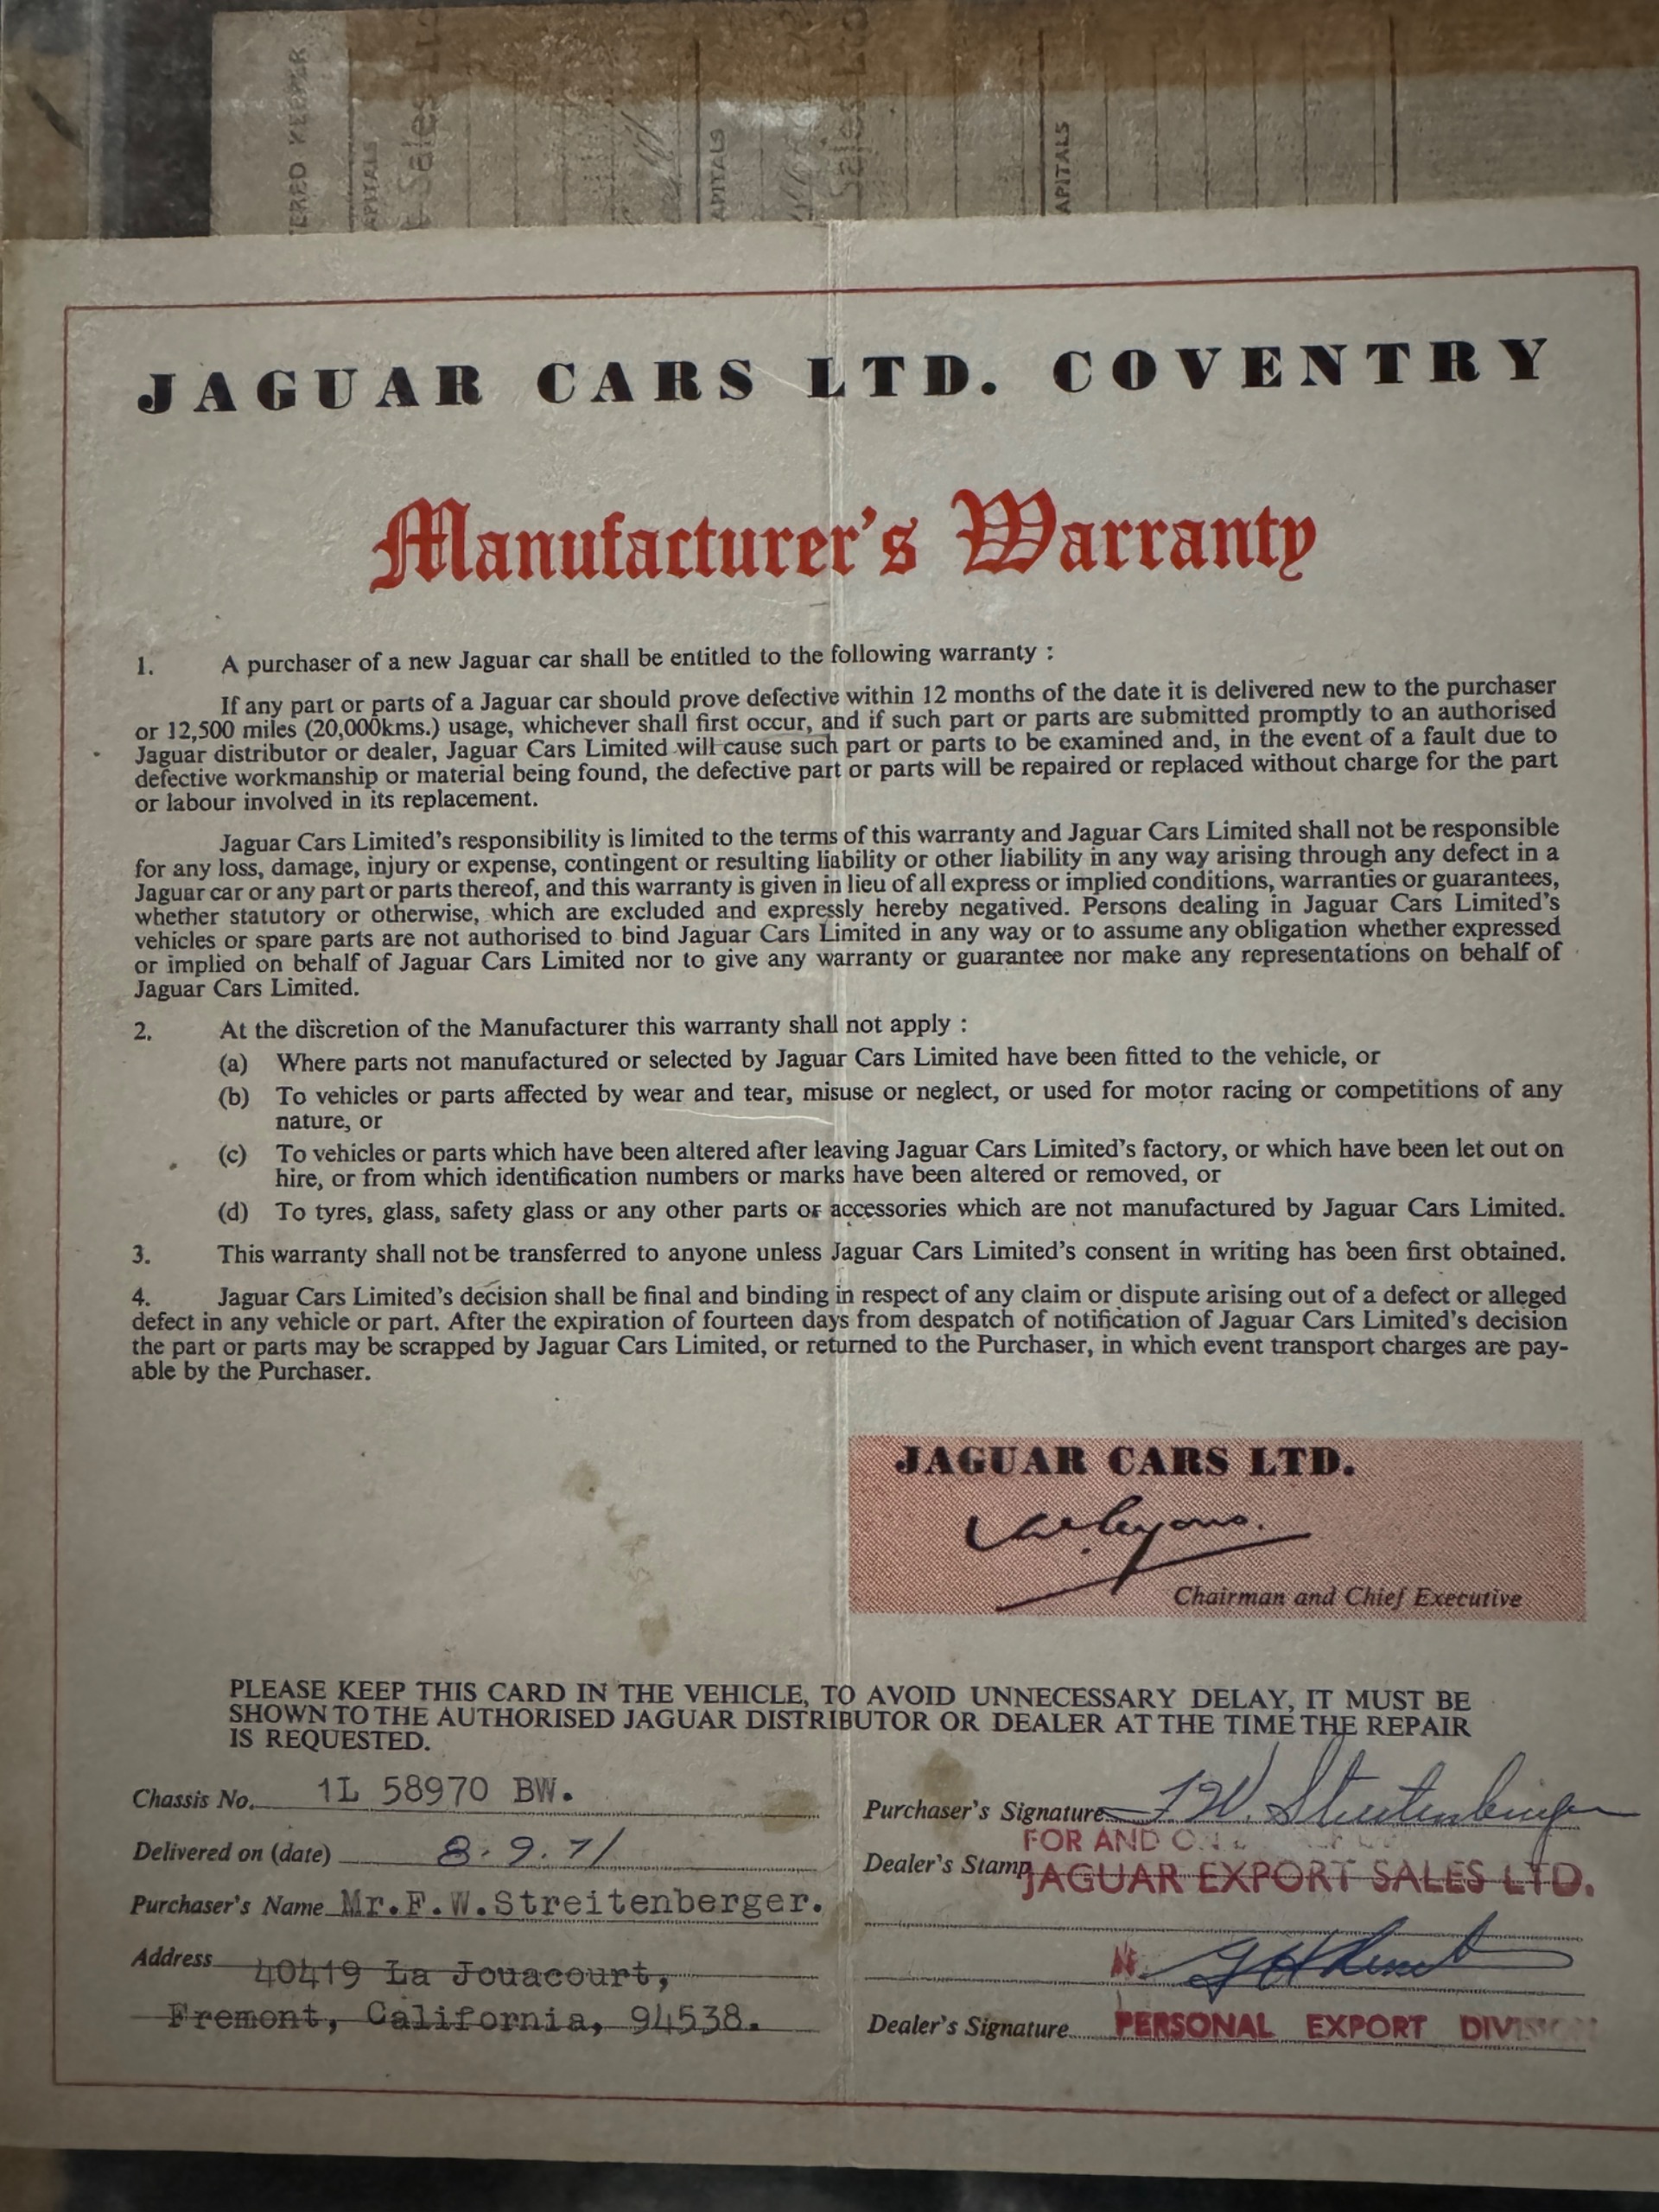 ERED KEEPER
APITALS
Sales
APITALS
Sales Ltd
APITALS
JAGUAR CARS LTD. COVENTRY
Manufacturer's Warranty
1. A purchaser of a new Jaguar car shall be entitled to the following warranty :
If any part or parts of a Jaguar car should prove defective within 12 months of the date it is delivered new to the purchaser
or 12,500 miles (20,000kms.) usage, whichever shall first occur, and if such part or parts are submitted promptly to an authorised
Jaguar distributor or dealer, Jaguar Cars Limited will cause such part or parts to be examined and, in the event of a fault due to
defective workmanship or material being found, the defective part or parts will be repaired or replaced without charge for the part
or labour involved in its replacement.
Jaguar Cars Limited's responsibility is limited to the terms of this warranty and Jaguar Cars Limited shall not be responsible
for any loss, damage, injury or expense, contingent or resulting liability or other liability in any way arising through any defect in a
Jaguar car or any part or parts thereof, and this warranty is given in lieu of all express or implied conditions, warranties or guarantees,
whether statutory or otherwise, which are excluded and expressly hereby negatived. Persons dealing in Jaguar Cars Limited's
vehicles or spare parts are not authorised to bind Jaguar Cars Limited in any way or to assume any obligation whether expressed
or implied on behalf of Jaguar Cars Limited nor to give any warranty or guarantee nor make any representations on behalf of
Jaguar Cars Limited.
2. At the discretion of the Manufacturer this warranty shall not apply :
(a) Where parts not manufactured or selected by Jaguar Cars Limited have been fitted to the vehicle, or
(b) To vehicles or parts affected by wear and tear, misuse or neglect, or used for motor racing or competitions of any
nature, or
(c) To vehicles or parts which have been altered after leaving Jaguar Cars Limited's factory, or which have been let out on
hire, or from which identification numbers or marks have been altered or removed, or
(d) To tyres, glass, safety glass or any other parts or accessories which are not manufactured by Jaguar Cars Limited.
3. This warranty shall not be transferred to anyone unless Jaguar Cars Limited's consent in writing has been first obtained.
4. Jaguar Cars Limited's decision shall be final and binding in respect of any claim or dispute arising out of a defect or alleged
defect in any vehicle or part. After the expiration of fourteen days from despatch of notification of Jaguar Cars Limited's decision
the part or parts may be scrapped by Jaguar Cars Limited, or returned to the Purchaser, in which event transport charges are pay-
able by the Purchaser.
JAGUAR CARS LTD.
W. Lyons.
Chairman and Chief Executive
PLEASE KEEP THIS CARD IN THE VEHICLE, TO AVOID UNNECESSARY DELAY, IT MUST BE
SHOWN TO THE AUTHORISED JAGUAR DISTRIBUTOR OR DEALER AT THE TIME THE REPAIR
IS REQUESTED.
Chassis No. 1L 58970 BW.
Delivered on (date) 8.9.71
Purchaser's Name Mr.F.W.Streitenberger.
Address 40419 La Jouacourt,
Fremont, California, 94538.
Purchaser's Signature F W. Streitenberger
FOR AND
Dealer's Stamp JAGUAR EXPORT SALES LTD.
Dealer's Signature PERSONAL EXPORT DIVISION